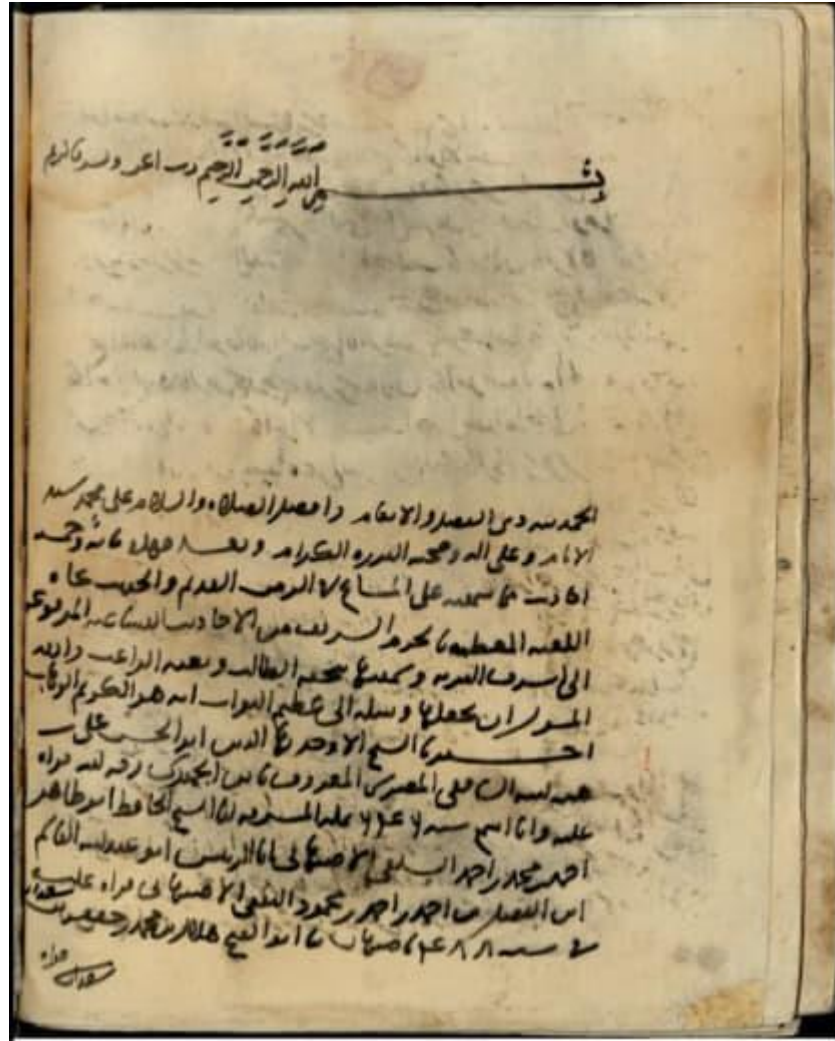 بسم الله الرحمن الرحيم رب اعن ويسر يا كريم
الحمد لله ذي الفضل والانعام وافضل الصلاه والسلام على محمد سيد
الانام وعلى اله وصحبه البرره الكرام وبعد فهذه مائه وخمسه
احاديث مما سمعته على المشايخ
من الاحاديث المرفوعه
الى اشرف البريه وسميتها تحفه الطالب وبغيه الراغب والله
المسول ان يجعلها وسيله الى عظيم الثواب انه هو الكريم الوهاب
اخبرنا الشيخ الاوحد بها الدين ابو الحسن علي بن
هبه الله الشافعي المصري المعروف بابن الجميزي رحمه الله قراه
عليه وانا اسمع سنه بمكه المشرفه انا الشيخ الحافظ ابو طاهر
احمد بن محمد بن احمد السلفي الاصبهاني انا الرئيس ابو عبد الله القاسم
ابن الفضل بن احمد بن احمد بن محمود الثقفي الاصبهاني قراه عليه
في سنه ٤٨٨ باصبهان نا ابو الفتح هلال بن محمد بن جعفر